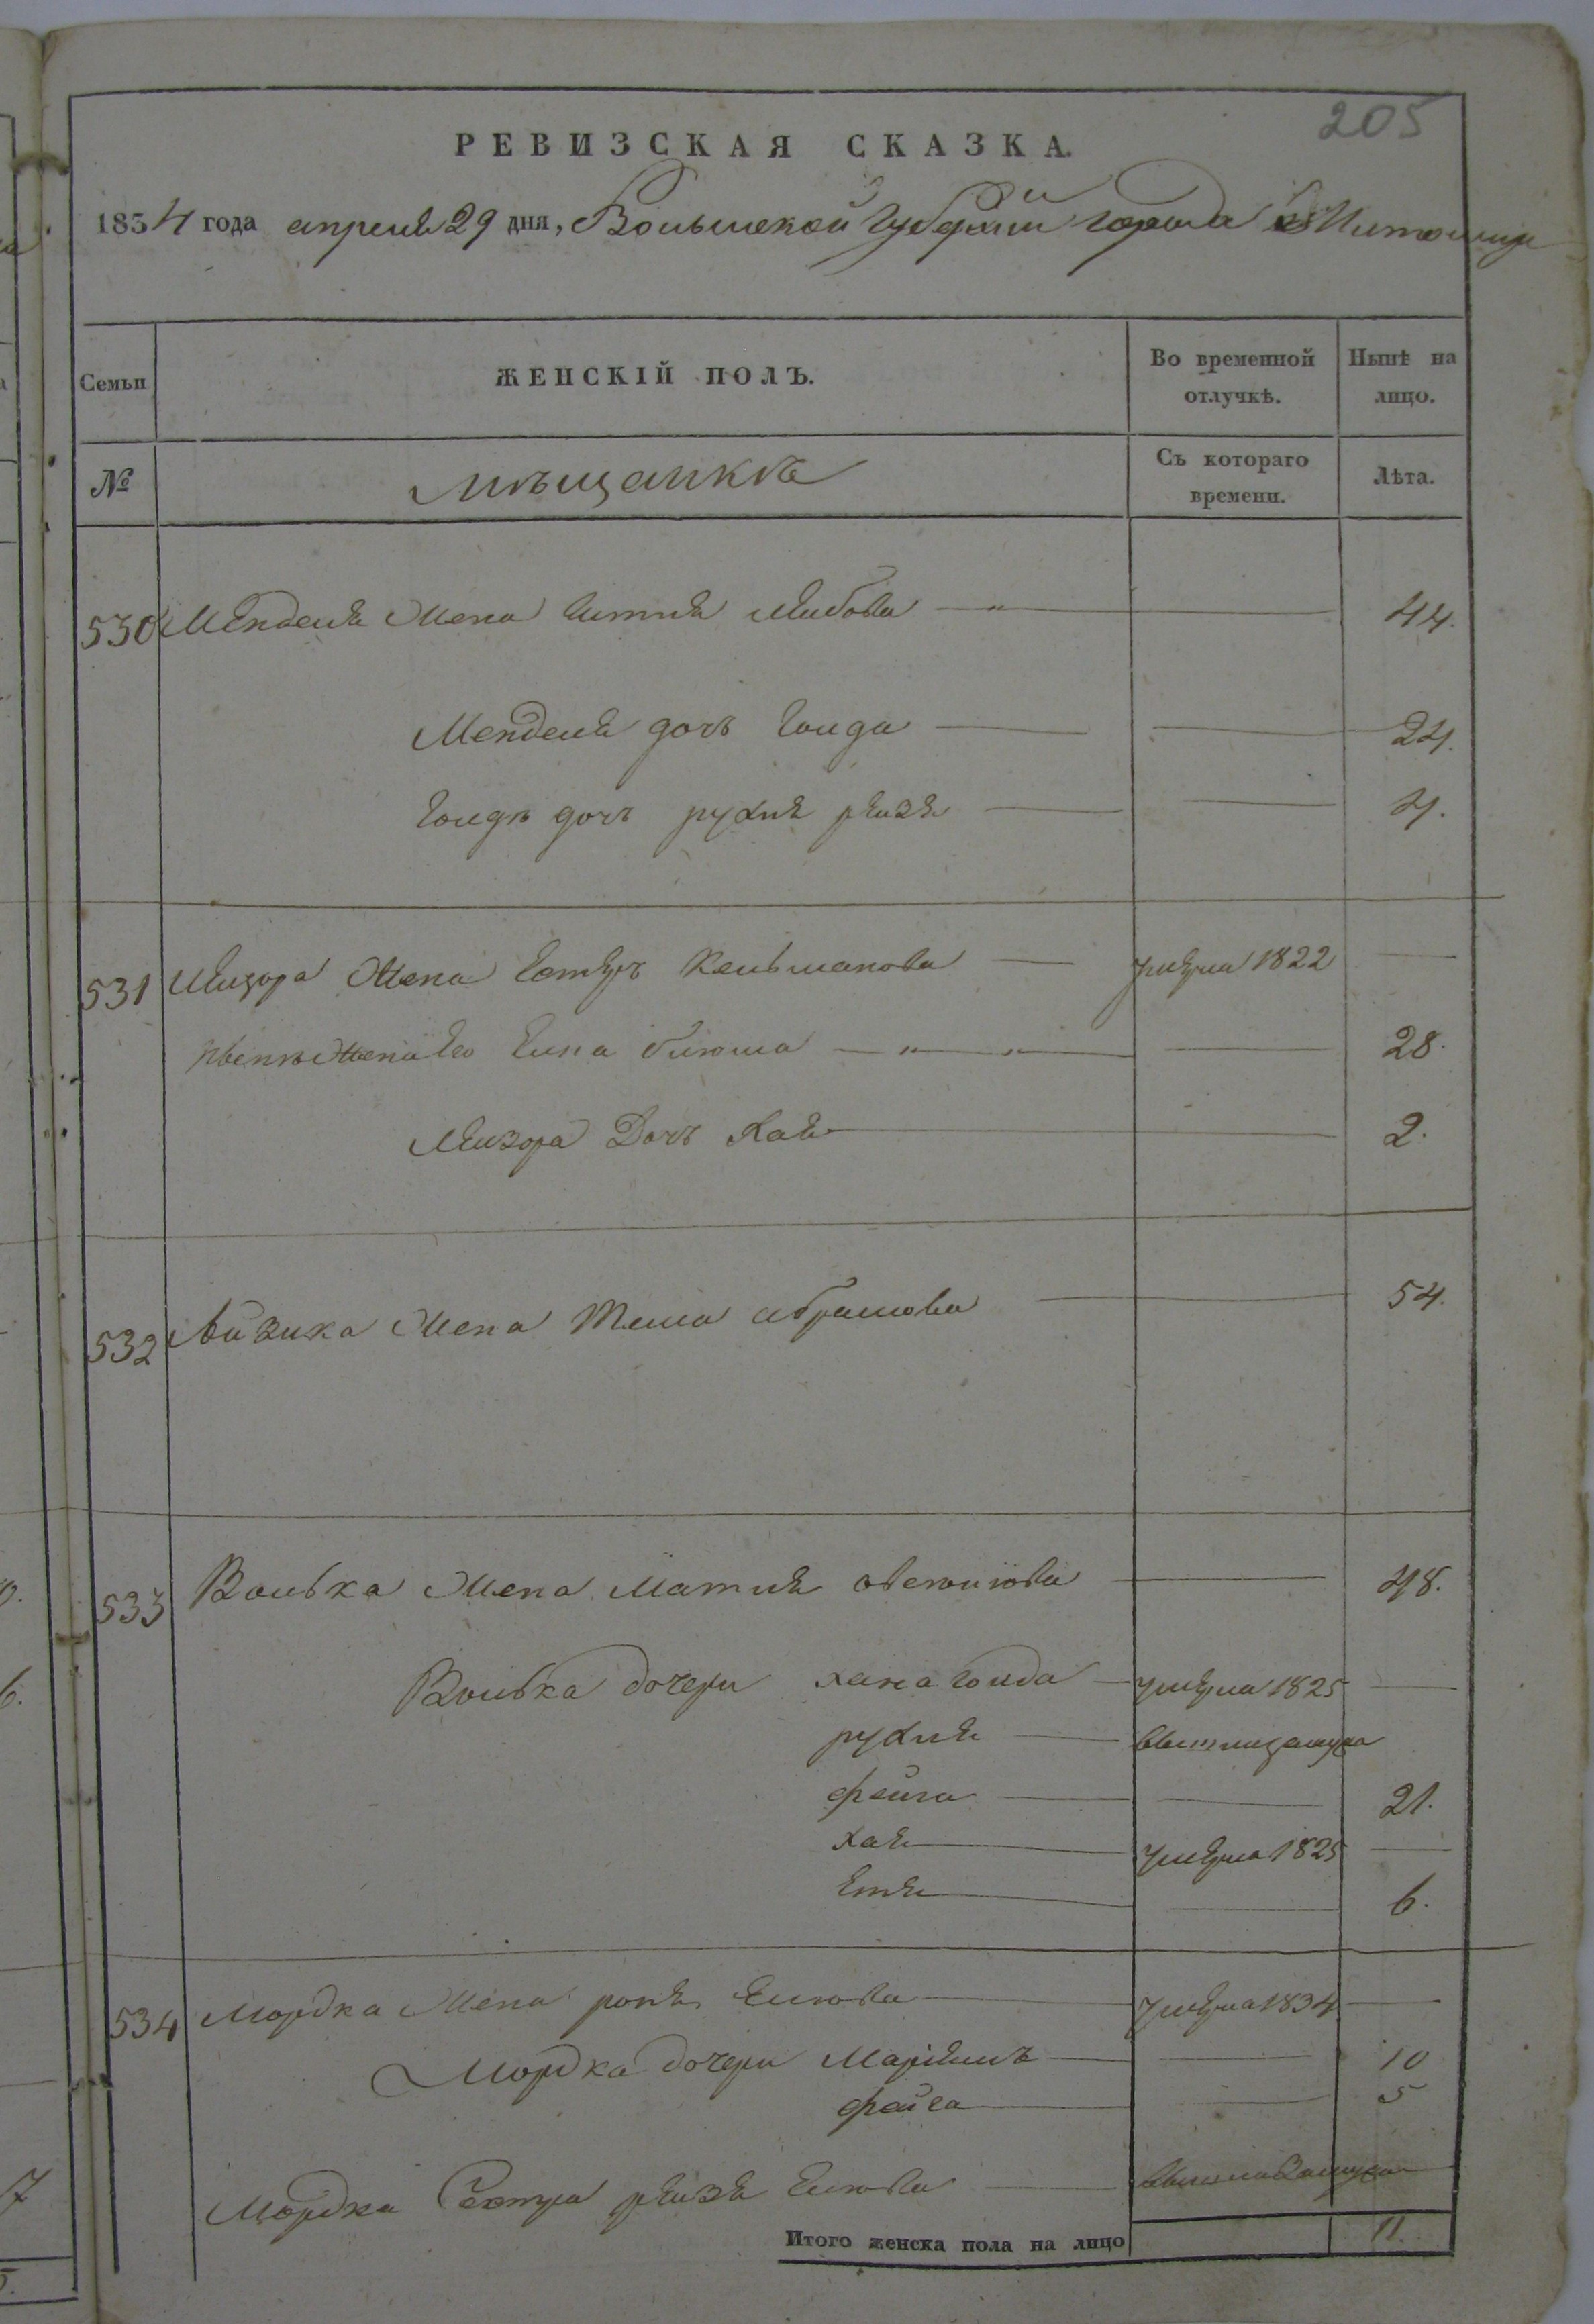 205
РЕВИЗСКАЯ СКАЗКА.
1834 года апреля 29 дня, Волынской Губернии города Житомира
Семьи
ЖЕНСКІЙ ПОЛЪ.
Во временной отлучкѣ.
Нынѣ на лицо.
№
мѣщанкѣ
Съ котораго времени.
Лѣта.
530 Менделя жена Лейбова — 44.
Менделя дочь Голда — 24.
Голды дочь рухля рейзя — 4.
531 Лейзора жена Естеръ Кельманова — умерла 1822 —
жена его Елка блюма — 28.
Лейзора Дочь Хая — 2.
532 Айзика жена абрамова — 54.
533 Волька жена Матля — 48.
Волька дочери хана голда — умерла 1825 —
рухля — вышла замужъ
фейга — 21.
хая — умерла 1825 —
Етя — 6.
534 Мордка жена Елюва — умерла 1834 —
Мордка дочери Маріемъ — 10
фейга — 5
Мордка Сестра рейзя Елюва — вышла замужъ
Итого женска пола на лицо 11.